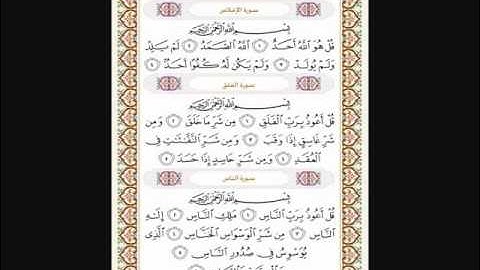 سورة الإخلاص
بِسْمِ ٱللَّهِ ٱلرَّحْمَٰنِ ٱلرَّحِيمِ
قُلْ هُوَ ٱللَّهُ أَحَدٌ ١ ٱللَّهُ ٱلصَّمَدُ ٢ لَمْ يَلِدْ
وَلَمْ يُولَدْ ٣ وَلَمْ يَكُن لَّهُ كُفُوًا أَحَدٌ ٤
سورة الفلق
بِسْمِ ٱللَّهِ ٱلرَّحْمَٰنِ ٱلرَّحِيمِ
قُلْ أَعُوذُ بِرَبِّ ٱلْفَلَقِ ١ مِن شَرِّ مَا خَلَقَ ٢ وَمِن
شَرِّ غَاسِقٍ إِذَا وَقَبَ ٣ وَمِن شَرِّ ٱلنَّفَّٰثَٰتِ فِي
ٱلْعُقَدِ ٤ وَمِن شَرِّ حَاسِدٍ إِذَا حَسَدَ ٥
سورة الناس
بِسْمِ ٱللَّهِ ٱلرَّحْمَٰنِ ٱلرَّحِيمِ
قُلْ أَعُوذُ بِرَبِّ ٱلنَّاسِ ١ مَلِكِ ٱلنَّاسِ ٢ إِلَٰهِ
ٱلنَّاسِ ٣ مِن شَرِّ ٱلْوَسْوَاسِ ٱلْخَنَّاسِ ٤ ٱلَّذِي
يُوَسْوِسُ فِي صُدُورِ ٱلنَّاسِ ٥